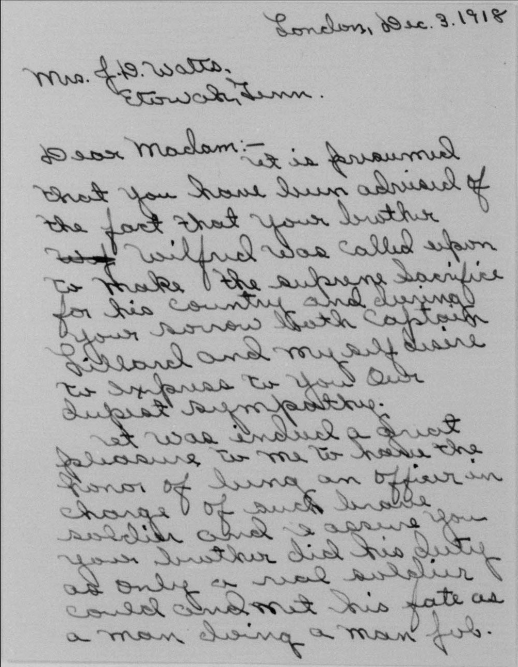 London, Dec. 3. 1918
Mrs. J. D. Watts.
Etowah, Tenn.
Dear Madam:-
It is presumed
that you have been advised of
the fact that your brother
Wilfrid was called upon
to make the supreme sacrifice
for his country and during
your sorrow both Captain
Lillard and myself desire
to express to you our
deepest sympathy.
It was indeed a great
pleasure to me to have the
honor of being an officer in
charge of such brave
soldier and I assure you
your brother did his duty
as only a real soldier
could and met his fate as
a man doing a man job.